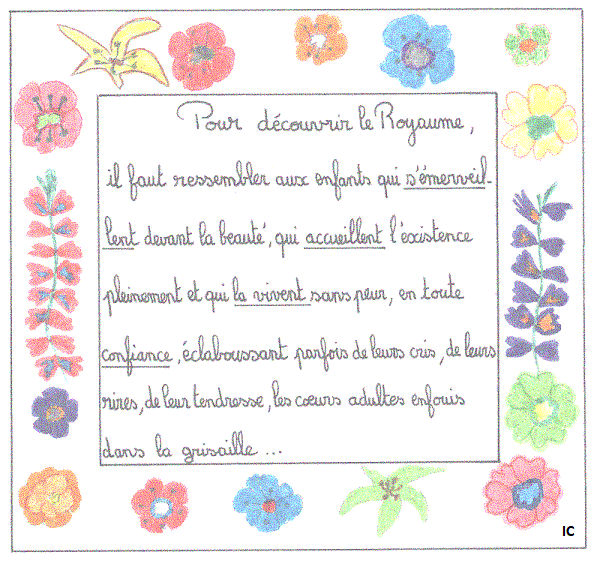 Pour découvrir le Royaume,
il faut ressembler aux enfants qui s'émerveil-
lent devant la beauté, qui accueillent l'existence
pleinement et qui la vivent sans peur, en toute
confiance, éclaboussant parfois de leurs cris, de leurs
rires, de leur tendresse, les cœurs adultes enfouis
dans la grisaille ...
IC